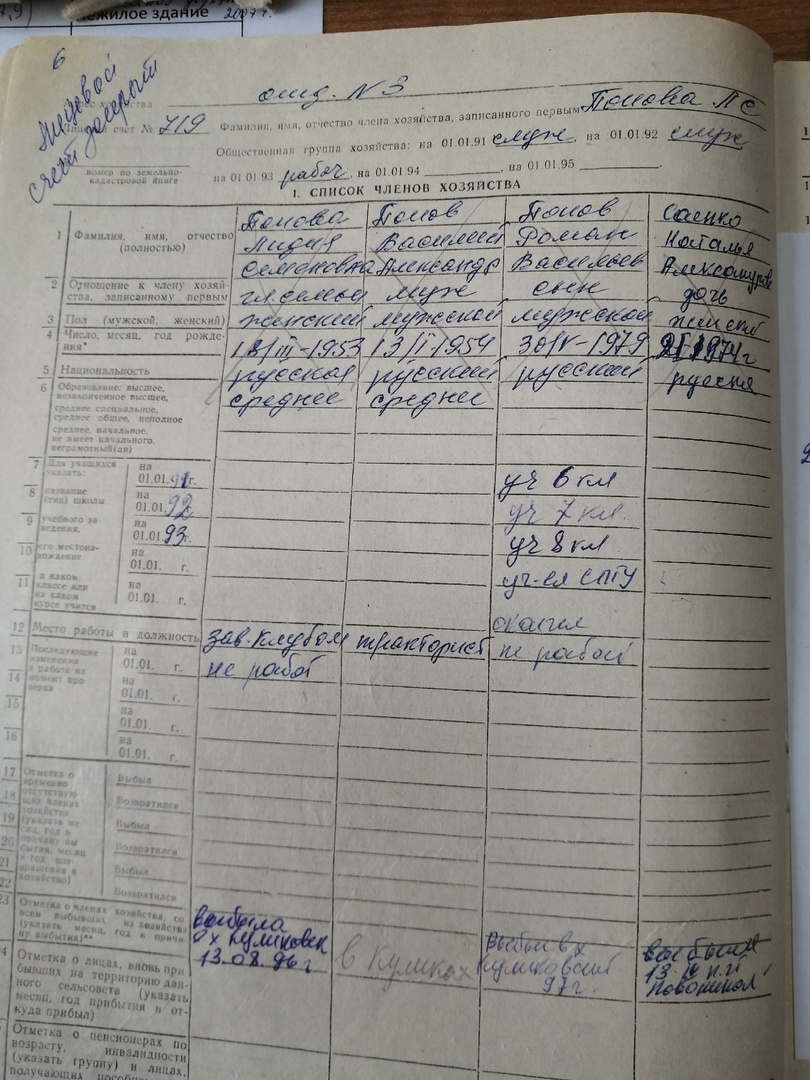 7,9
нежилое здание 2007 г.
6
Лицевой
счет закрыт
хозяйства отд. N 3
счет № 719 Фамилия, имя, отчество члена хозяйства, записанного первым Попова Л С
Общественная группа хозяйства: на 01.01.91 служ, на 01.01.92 служ
номер по земельно-
кадастровой книге
на 01.01.93 рабоч, на 01.01.94, на 01.01.95
I. СПИСОК ЧЛЕНОВ ХОЗЯЙСТВА
1 Фамилия, имя, отчество
(полностью)
Попова
Лидия
Семеновна
Попов
Василий
Александр
Попов
Роман
Васильев
Саенко
Наталья
2 Отношение к члену хозяй-
ства, записанному первым
гл. семьи
муж
сын
дочь
3 Пол (мужской, женский)
женский
мужской
мужской
женский
4 Число, месяц, год рожде-
ния*
III-1953
1954
1979
1974 г
5 Национальность
русская
русский
русский
6 Образование: высшее,
незаконченное высшее,
среднее специальное,
среднее общее, неполное
среднее, начальное,
не имеет начального,
неграмотный(ая)
среднее
среднее
7 Для учащихся
указать:
на
01.01.91г.
уч 6 кл
8 название
(тип) школы
на
01.01.92
уч 7 кл.
9 учебного за
ведения,
на
01.01.93г.
уч 8 кл
10 его местона-
хождение
на
01.01. г.
уч-ся СПТУ
11 в каком
классе или
на каком
курсе учится
на
01.01. г.
12 Место работы и должность
зав. клубом
тракторист
13 Последующие
изменения
в работе на
момент про-
верки
на
01.01. г.
не работ
не работ
14 на
01.01. г.
15 на
01.01. г.
16 на
01.01. г.
17 Отметка о
временно
отсутствую
щих членах
хозяйства
(указать ме
сяц, год и
причину вы
бытия, месяц
и год воз-
вращения в
хозяйство)
Выбыл
18 Возвратился
19 Выбыл
20 Возвратился
21 Выбыл
22 Возвратился
23 Отметка о членах хозяйства, со
всем выбывших из хозяйства
(указать месяц, год и причи
ну выбытия)**
выбыла
13.08.96 г
в Куликах
Выбыл в х
Куликовский
97 г.
24 Отметка о лицах, вновь при
бывших на территорию дан-
ного сельсовета (указать
месяц, год прибытия и от-
куда прибыл)
Отметка о пенсионерах по
возрасту, инвалидности
(указать группу) и лицах,
получающих